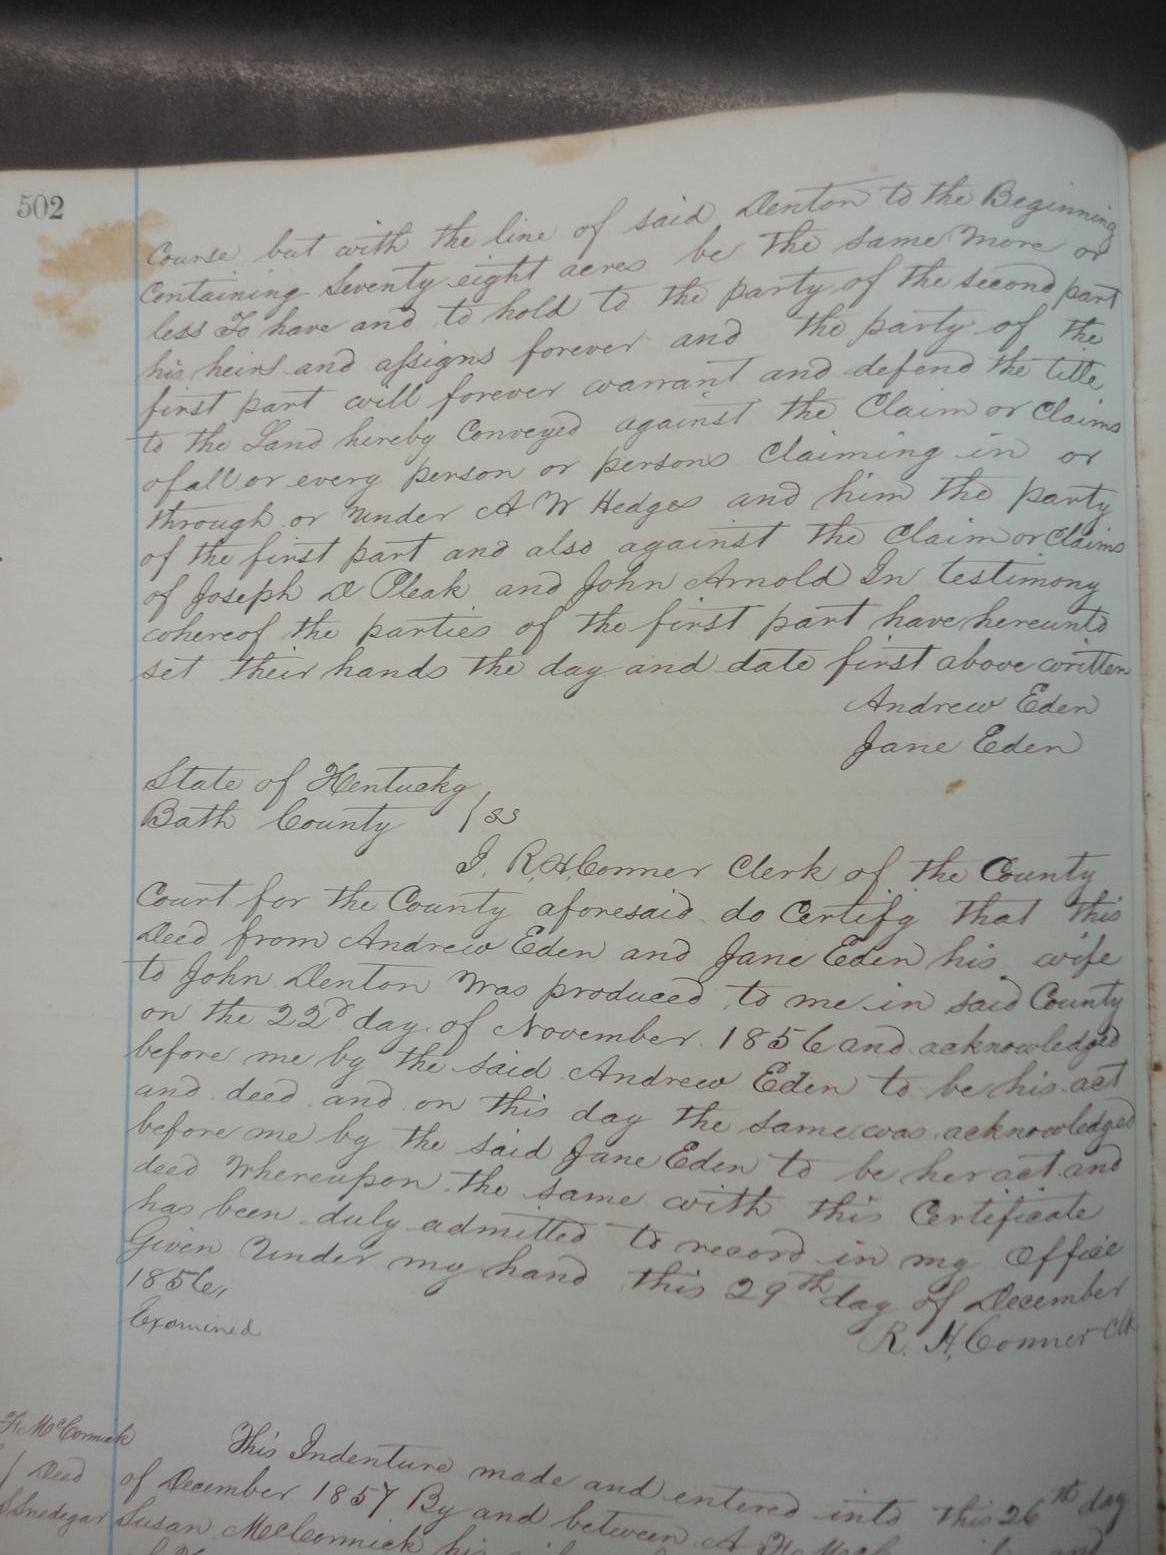 502
Course but with the line of said Denton to the Beginning
Containing Seventy eight acres be the same more or
less To have and to hold to the party of the second part
his heirs and assigns forever and the party of the
first part will forever warrant and defend the title
to the Land hereby Conveyed against the Claim or Claims
of all or every person or persons Claiming in or
through or under A W Hedges and him the party
of the first part and also against the Claim or Claims
of Joseph D Pleak and John Arnold In testimony
whereof the parties of the first part have hereunto
set their hands the day and date first above written
Andrew Eden
Jane Eden
State of Kentucky
Bath County } ss
I, R. H. Conner Clerk of the County
Court for the County aforesaid do Certify that this
Deed from Andrew Eden and Jane Eden his wife
to John Denton was produced to me in said County
on the 22d day of November 1856 and acknowledged
before me by the said Andrew Eden to be his act
and deed and on this day the same was acknowledged
before me by the said Jane Eden to be her act and
deed Whereupon the same with this Certificate
has been duly admitted to record in my Office
Given Under my hand this 29th day of December
1856,
Examined
R. H. Conner Clk
F. McCormick
Deed
Snedegar
This Indenture made and entered into this 26th day
of December 1857 By and between A
Susan McCormick his